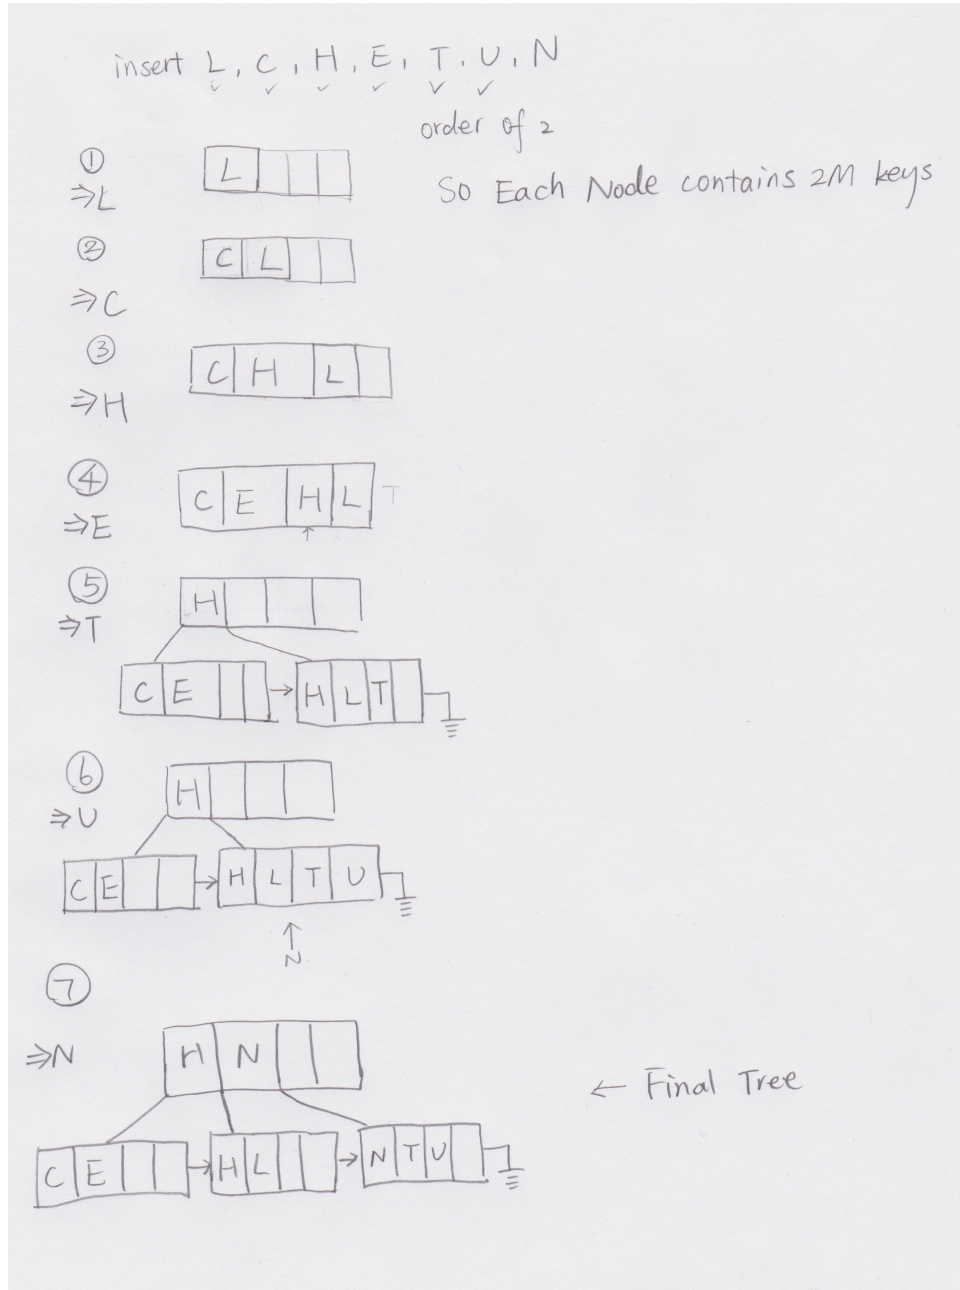 insert L, C, H, E, T, U, N
order of 2
So Each Node contains 2M keys
①
⇒L
L
②
⇒C
C L
③
⇒H
C H L
④
⇒E
C E H L T
↑
⑤
⇒T
H
C E → H L T
⑥
⇒U
H
C E → H L T U
↑
N
⑦
⇒N
H N
← Final Tree
C E → H L → N T U